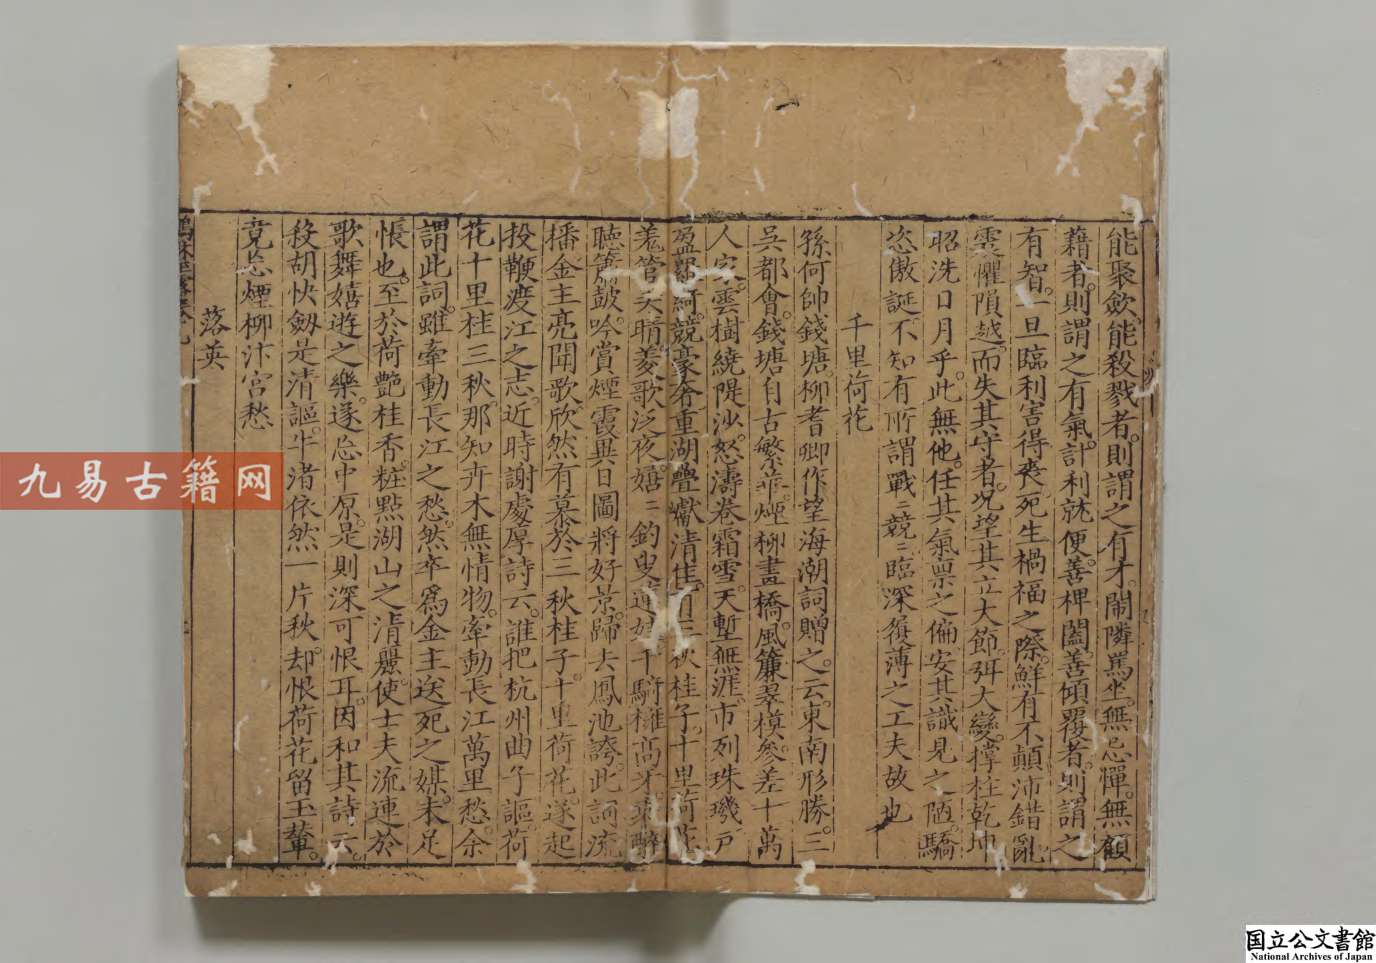 能聚歛能殺戮者則謂之有才鬧隣罵坐無忌憚無顧
藉者則謂之有氣計利就便善捭闔善傾覆者則謂之
有智一旦臨利害得喪死生禍福之際鮮有不顛沛錯亂
震懼隕越而失其守者况望其立大節弭大變撑柱乾坤
昭洗日月乎此無他任其氣禀之偏安其識見之陋驕
恣傲誕不知有所謂戰〻競〻臨深履薄之工夫故也
千里荷花
孫何帥錢塘柳耆卿作望海潮詞贈之云東南形勝三
吳都會錢塘自古繁華煙柳畫橋風簾翠模參差十萬
人家雲樹繞隄沙怒濤卷霜雪天塹無涯市列珠璣戸
盈羅綺競豪奢重湖疊巘清佳有三秋桂子十里荷花
羗管弄晴菱歌泛夜嬉〻釣叟蓮娃千騎擁高牙乘醉
聽簫鼓吟賞煙霞異日圖將好景歸去鳳池誇此詞流
播金主亮聞歌欣然有慕於三秋桂子十里荷花遂起
投鞭渡江之志近時謝處厚詩云誰把杭州曲子謳荷
花十里桂三秋那知卉木無情物牽動長江萬里愁余
謂此詞雖牽動長江之愁然卒爲金主送死之媒未足
悵也至於荷艶桂香粧點湖山之清麗使士夫流連於
歌舞嬉遊之樂遂忘中原是則深可恨耳因和其詩云
殺胡快劔是清謳牛渚依然一片秋却恨荷花留玉輦
竟忘煙柳汴宮愁
落英
九易古籍网
国立公文書館
National Archives of Japan